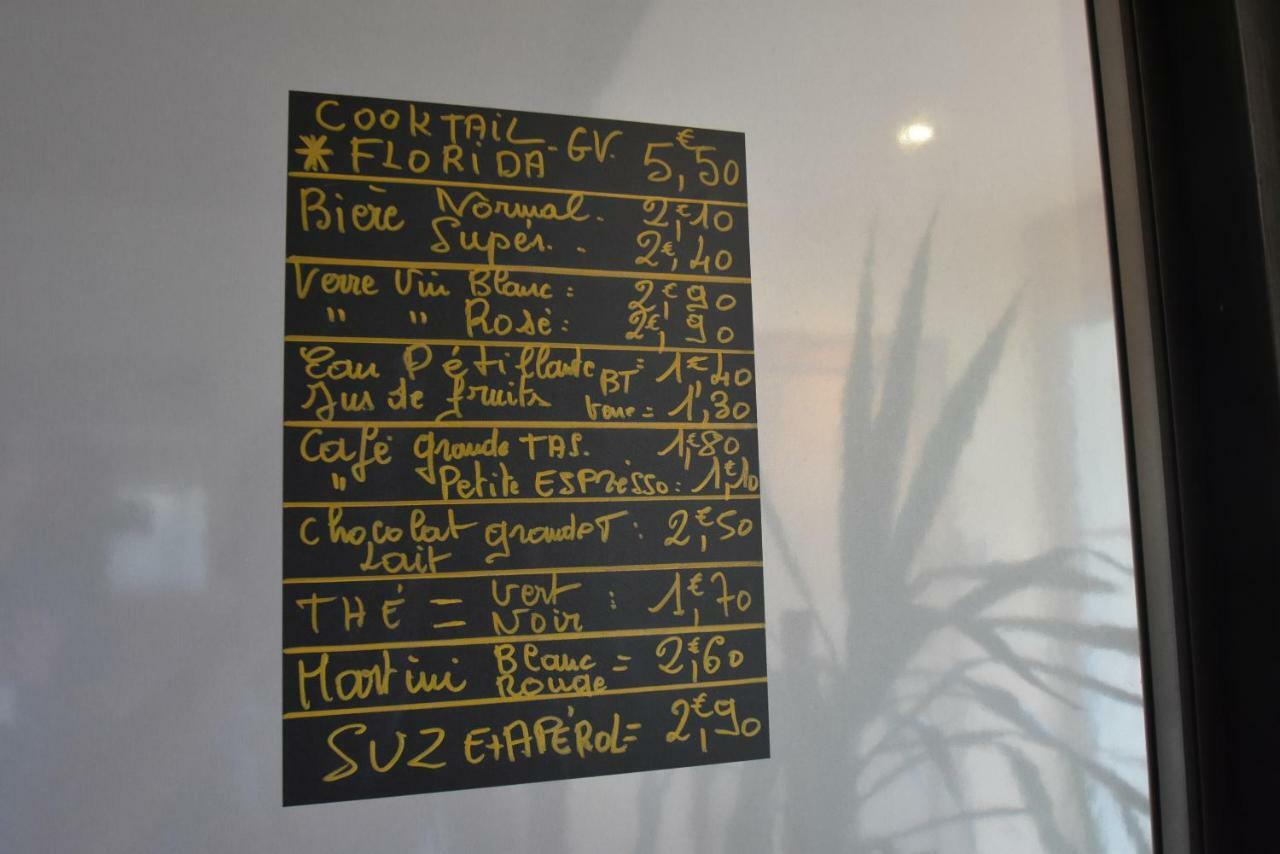 COOKTAIL
* FLORIDA - GV. 5,€50
Bière Normal. 2,€10
Supér. . 2€,40
Verre Vin Blanc : 2,€90
" " Rosé : 2€,90
Eau Pétillante BT = 1€40
Jus de fruits verre = 1,30
Café grande TAS. 1,€80
" Petite ESPresso : 1,€10
Chocolat grande T : 2,€50
Lait
THÉ = Vert : 1,€70
Noir
Martini Blanc = 2,€60
Rouge
SUZ Et APÉROL = 2,€90